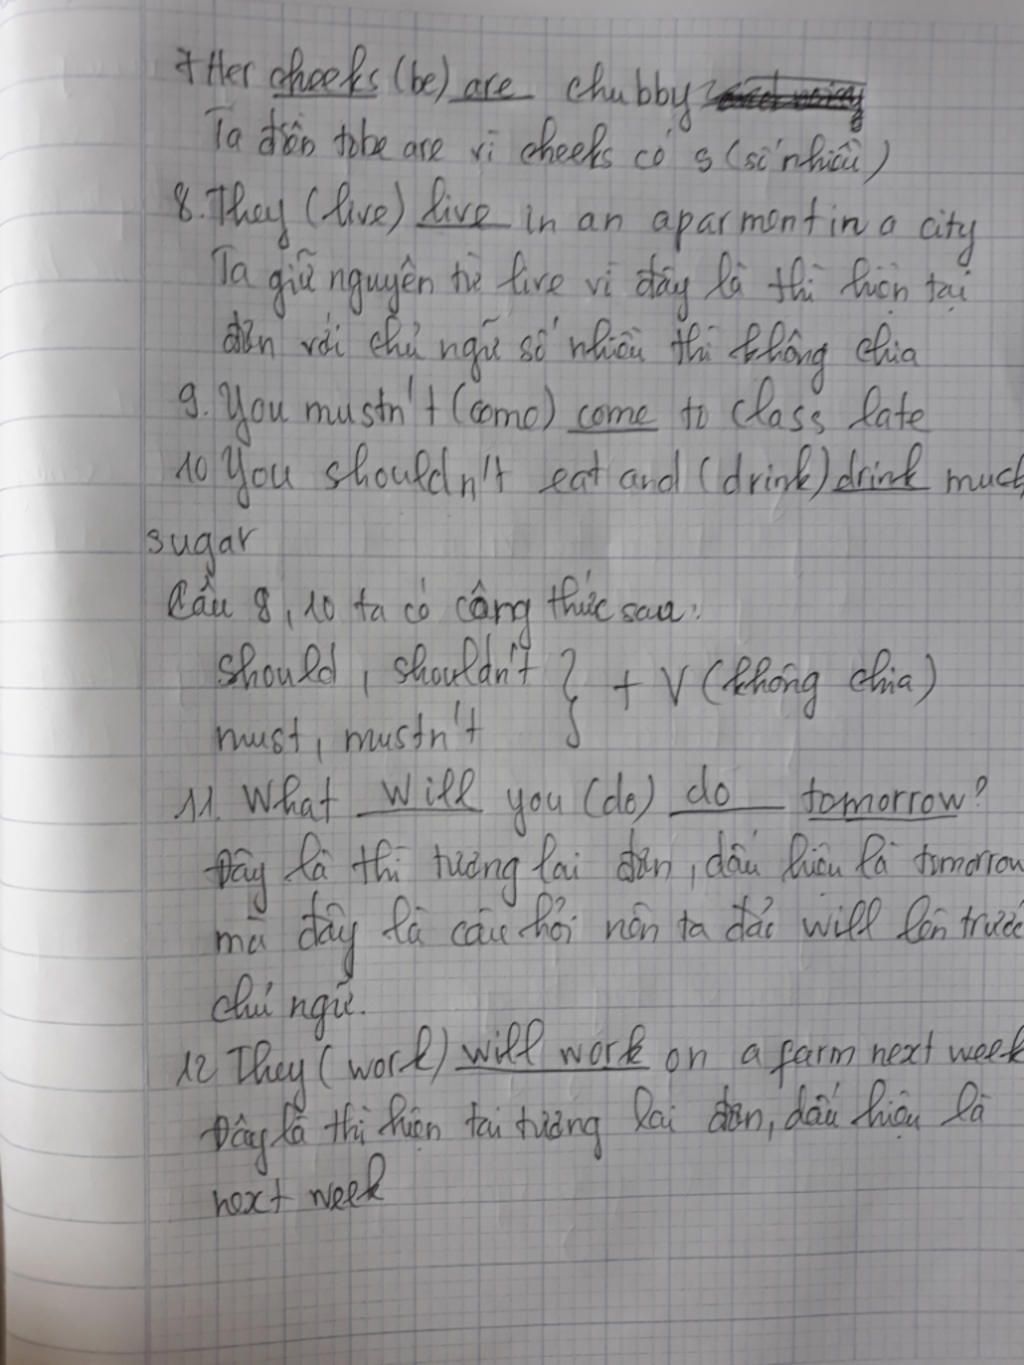 7 Her cheeks (be) are chubby
Ta điền tobe are vì cheeks có s (số nhiều)
8. They (live) live in an aparment in a city
Ta giữ nguyên từ live vì đây là thì hiện tại
đơn với chủ ngữ số nhiều thì không chia
9. You mustn't (come) come to class late
10 You shouldn't eat and (drink) drink much
sugar
Câu 8, 10 ta có công thức sau:
should, shouldn't } + V (không chia)
must, mustn't
11. What will you (do) do tomorrow?
Đây là thì tương lai đơn, dấu hiệu là tomorrow
mà đây là câu hỏi nên ta đảo will lên trước
chủ ngữ.
12 They (work) will work on a farm next week
Đây là thì hiện tại tương lai đơn, dấu hiệu là
next week